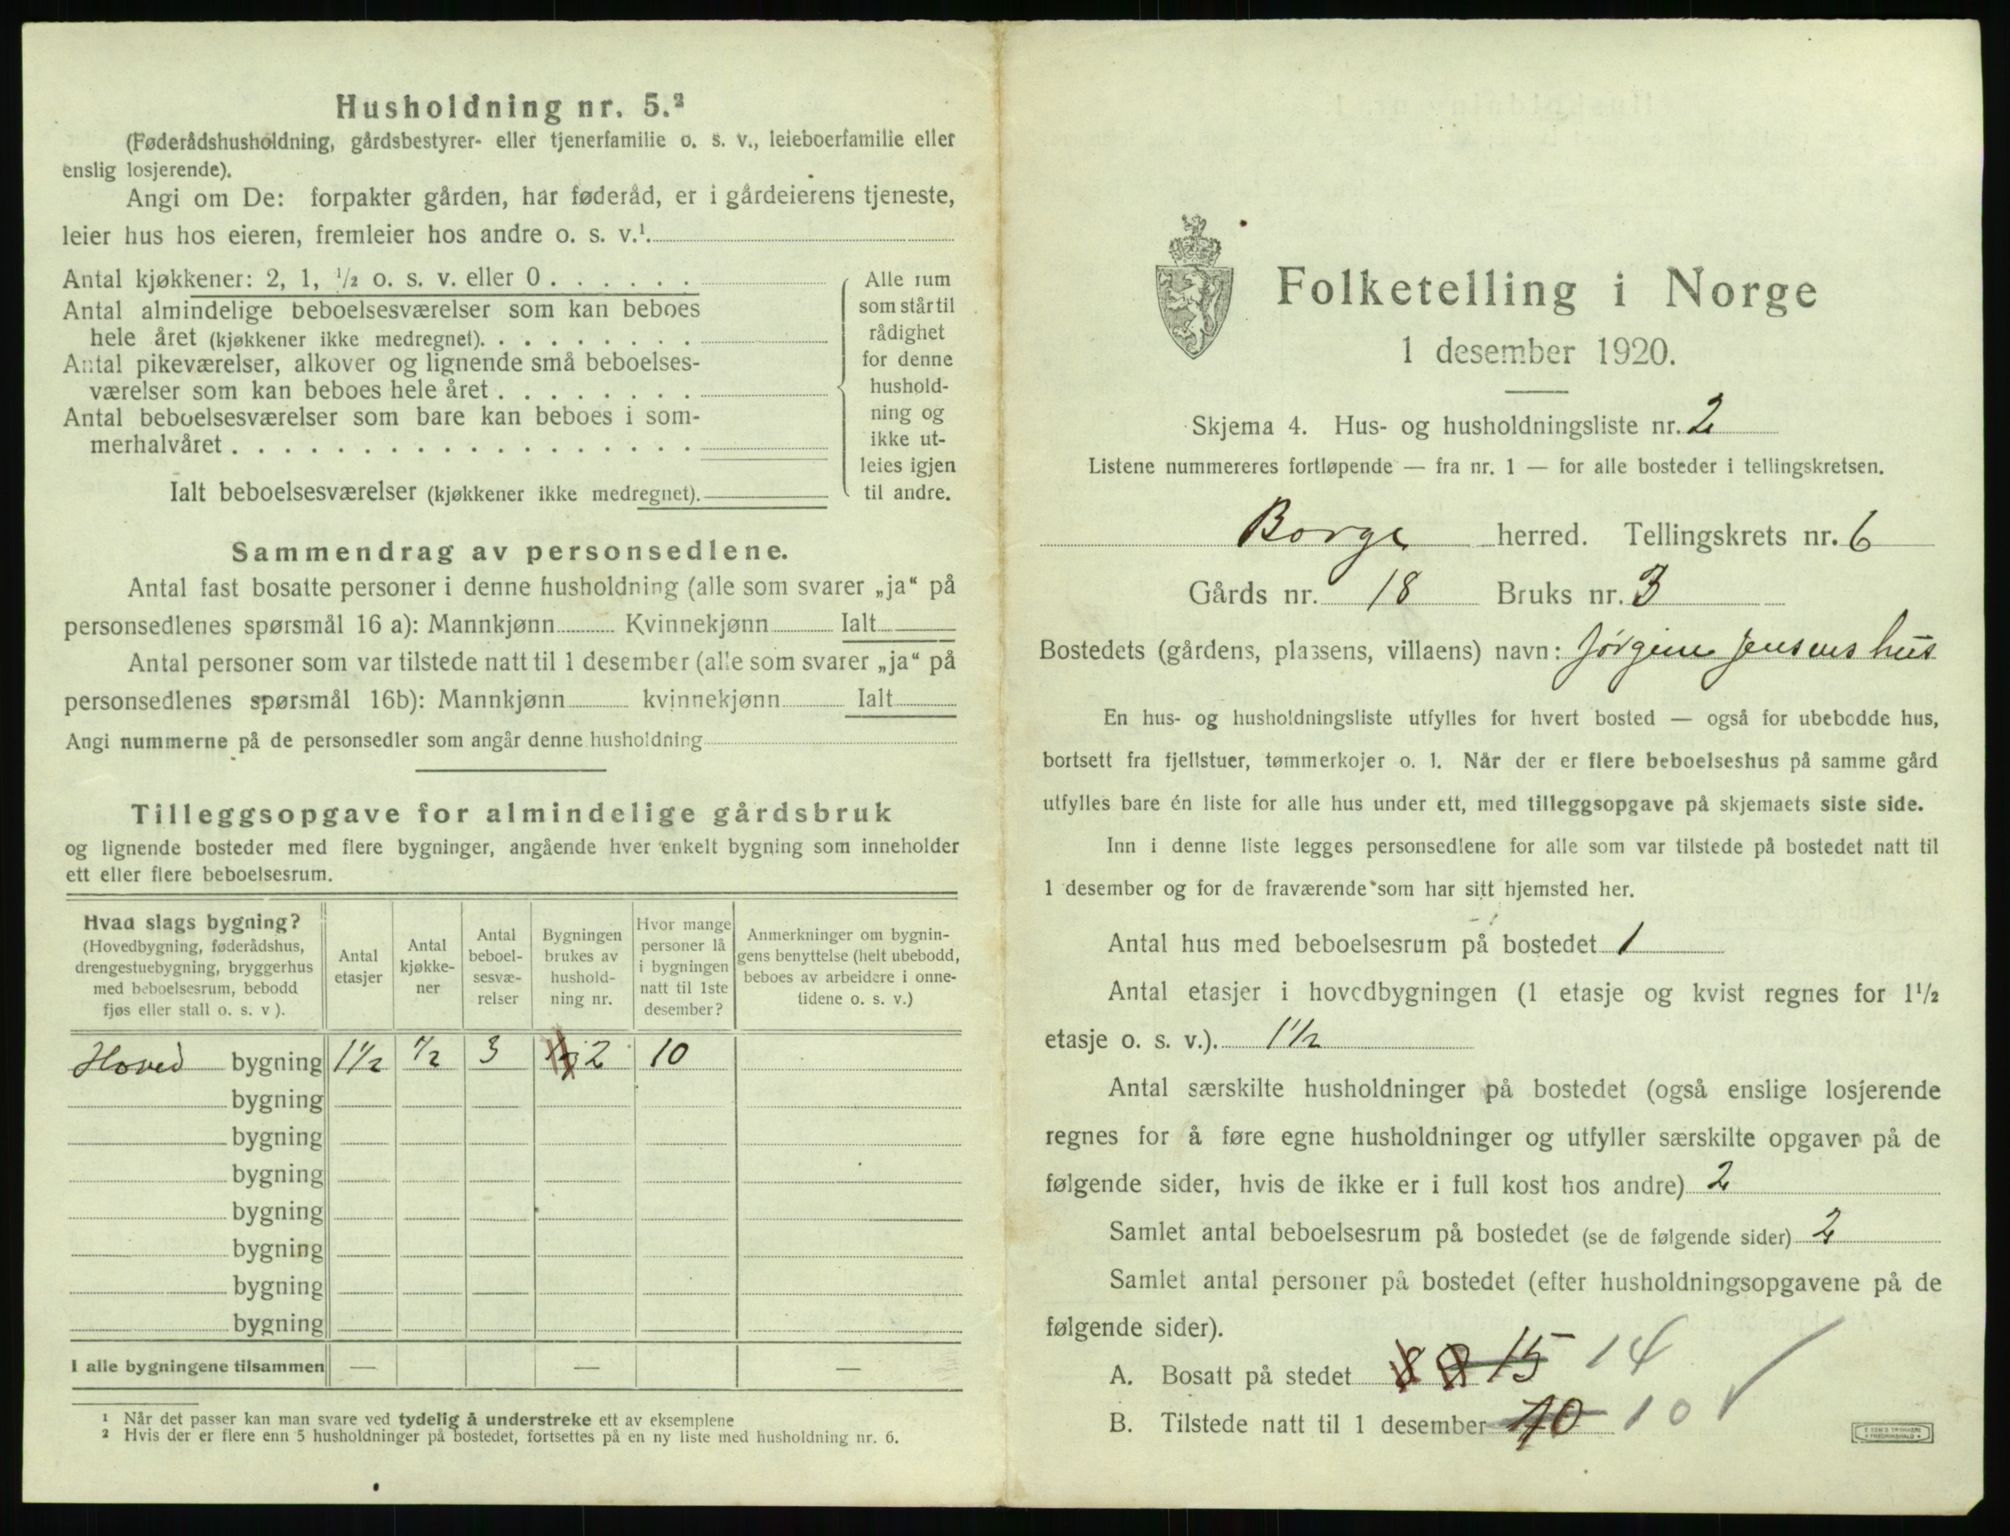 Husholdning nr. 5.²
(Føderådshusholdning, gårdsbestyrer- eller tjenerfamilie o. s. v., leieboerfamilie eller
enslig losjerende).
Angi om De: forpakter gården, har føderåd, er i gårdeierens tjeneste,
leier hus hos eieren, fremleier hos andre o. s. v.¹
Antal kjøkkener: 2, 1, ½ o. s. v. eller 0
Antal almindelige beboelsesværelser som kan beboes
hele året (kjøkkener ikke medregnet).
Antal pikeværelser, alkover og lignende små beboelses-
værelser som kan beboes hele året
Antal beboelsesværelser som bare kan beboes i som-
merhalvåret
Ialt beboelsesværelser (kjøkkener ikke medregnet).
Alle rum
som står til
rådighet
for denne
hushold-
ning og
ikke ut-
leies igjen
til andre.
Sammendrag av personsedlene.
Antal fast bosatte personer i denne husholdning (alle som svarer „ja“ på
personsedlenes spørsmål 16 a): Mannkjønn Kvinnekjønn Ialt
Antal personer som var tilstede natt til 1 desember (alle som svarer „ja“ på
personsedlenes spørsmål 16b): Mannkjønn kvinnekjønn Ialt
Angi nummerne på de personsedler som angår denne husholdning
Tilleggsopgave for almindelige gårdsbruk
og lignende bosteder med flere bygninger, angående hver enkelt bygning som inneholder
ett eller flere beboelsesrum.
Hvad slags bygning?
(Hovedbygning, føderådshus,
drengestuebygning, bryggerhus
med beboelsesrum, bebodd
fjøs eller stall o. s. v ).
Antal
etasjer
Antal
kjøkke-
ner
Antal
beboel-
sesvæ-
relser
Bygningen
brukes av
hushold-
ning nr.
Hvor mange
personer lå
i bygningen
natt til 1ste
desember?
Anmerkninger om bygnin-
gens benyttelse (helt ubebodd,
beboes av arbeidere i onne-
tidene o. s. v.)
Hoved bygning 1½ ½ 3 2 10
bygning
bygning
bygning
bygning
bygning
bygning
bygning
I alle bygningene tilsammen — — —
¹ Når det passer kan man svare ved tydelig å understreke ett av eksemplene
² Hvis der er flere enn 5 husholdninger på bostedet, fortsettes på en ny liste med husholdning nr. 6.
Folketelling i Norge
1 desember 1920.
Skjema 4. Hus- og husholdningsliste nr. 2
Listene nummereres fortløpende — fra nr. 1 — for alle bosteder i tellingskretsen.
Borge herred. Tellingskrets nr. 6
Gårds nr. 18 Bruks nr. 3
Bostedets (gårdens, plassens, villaens) navn: Jørgine Jensens hus
En hus- og husholdningsliste utfylles for hvert bosted — også for ubebodde hus,
bortsett fra fjellstuer, tømmerkojer o. l. Når der er flere beboelseshus på samme gård
utfylles bare én liste for alle hus under ett, med tilleggsopgave på skjemaets siste side.
Inn i denne liste legges personsedlene for alle som var tilstede på bostedet natt til
1 desember og for de fraværende som har sitt hjemsted her.
Antal hus med beboelsesrum på bostedet 1
Antal etasjer i hovedbygningen (1 etasje og kvist regnes for 1½
etasje o. s. v.). 1½
Antal særskilte husholdninger på bostedet (også enslige losjerende
regnes for å føre egne husholdninger og utfyller særskilte opgaver på de
følgende sider, hvis de ikke er i full kost hos andre) 2
Samlet antal beboelsesrum på bostedet (se de følgende sider) 2
Samlet antal personer på bostedet (efter husholdningsopgavene på de
følgende sider).
A. Bosatt på stedet 8 8 15 14
B. Tilstede natt til 1 desember 10 10